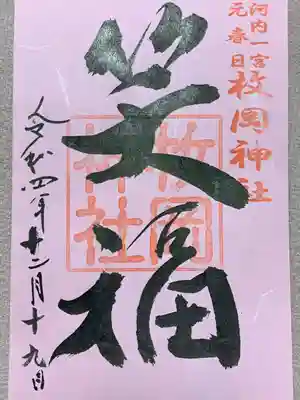 河内一宮
元春日
枚岡神社
笑福
枚岡
神社
令和四年十二月十九日